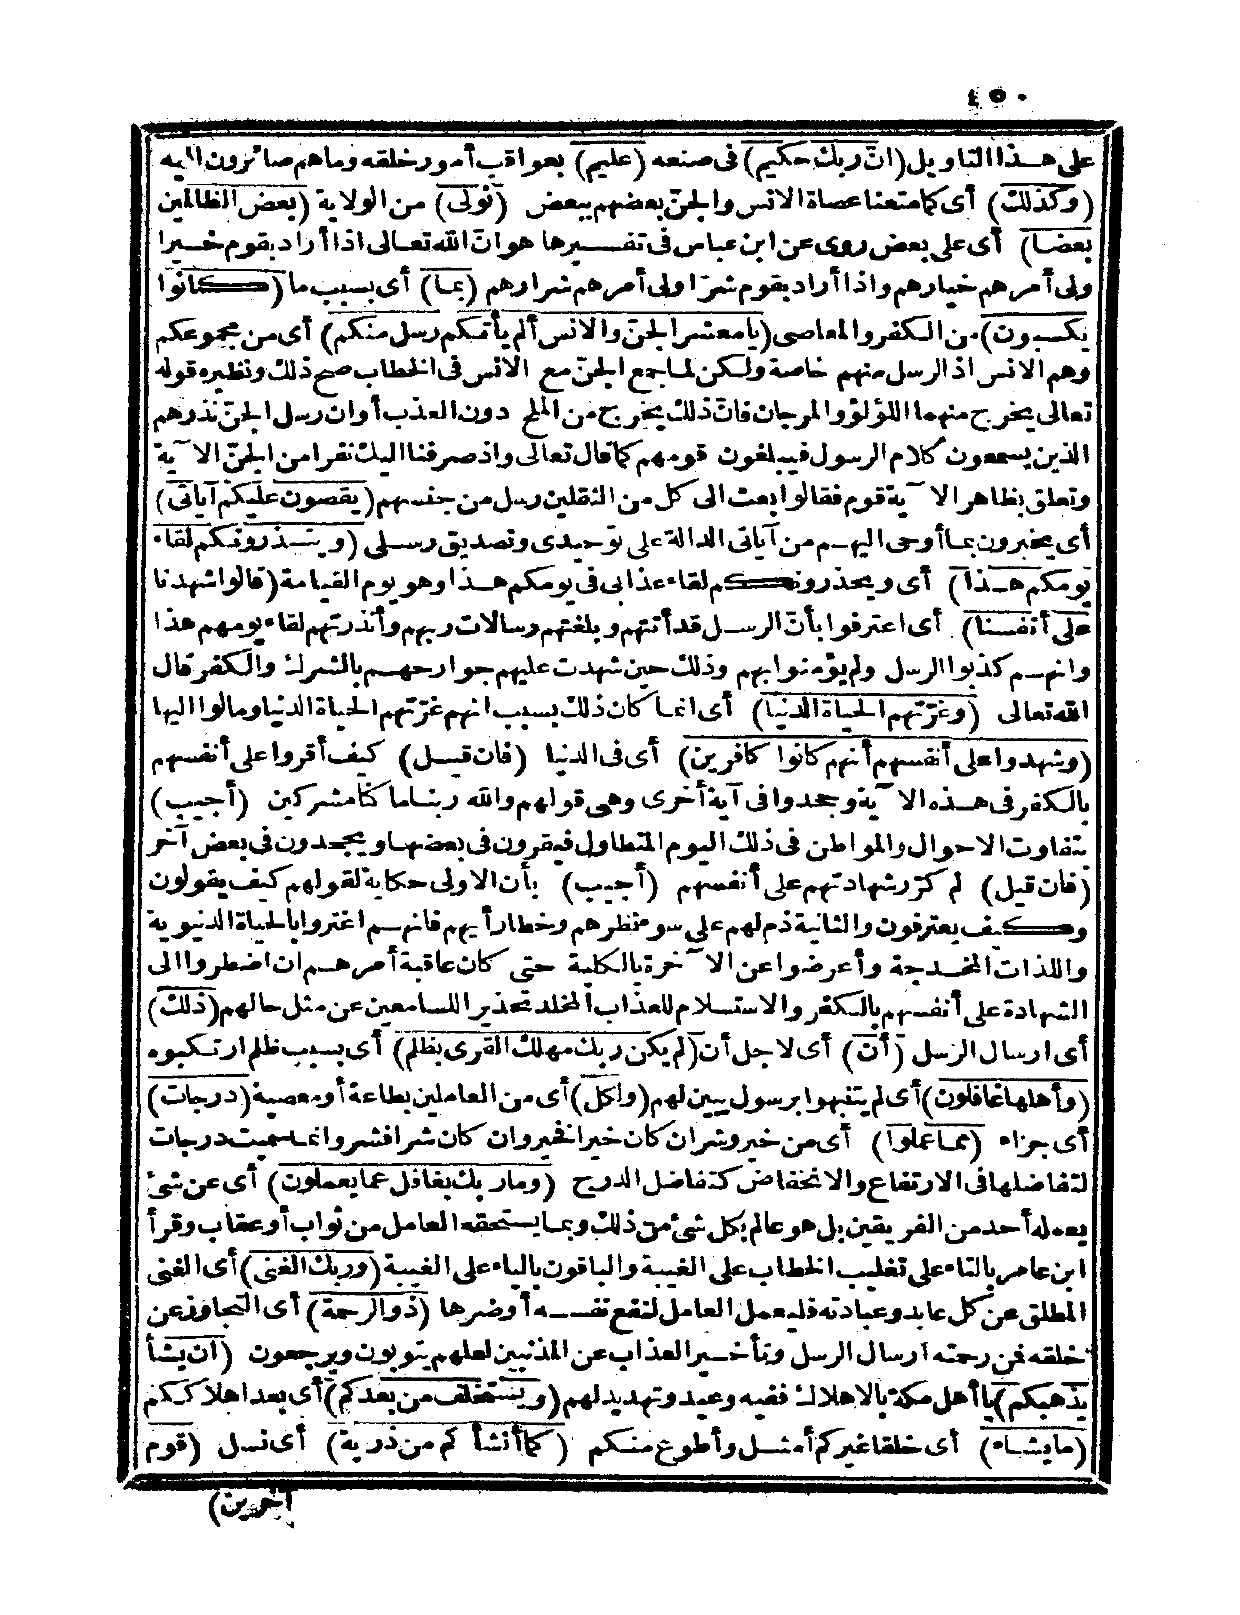 ٤٥٠
على هذا التاويل (انّ ربك حكيم) فى صنعه (عليم) بعواقب أمور خلقه وما هم صائرون اليه
(وكذلك) أى كما متعنا عصاة الانس والجنّ بعضهم ببعض (نولى) من الولاية (بعض الظالمين
بعضا) أى على بعض روى عن ابن عباس فى تفسيرها هو انّ الله تعالى اذا أراد بقوم خيرا
ولى أمرهم خيارهم واذا أراد بقوم شرّا ولى أمرهم شرارهم (بما) أى بسبب ما (كانوا
يكسبون) من الكفر والمعاصى (يا معشر الجنّ والانس ألم يأتكم رسل منكم) أى من مجموعكم
وهم الانس اذ الرسل منهم خاصة ولكن لما جمع الجنّ مع الانس فى الخطاب صح ذلك ونظيره قوله
تعالى يخرج منهما اللؤلؤ والمرجان فانّ ذلك يخرج من الملح دون العذب أو ان رسل الجنّ نذرهم
الذين يسمعون كلام الرسول فيبلغون قومهم كما قال تعالى واذ صرفنا اليك نفرا من الجنّ الآية
وتعلق بظاهر الآية قوم فقالوا بعث الى كل من الثقلين رسل من جنسهم (يقصون عليكم آياتى)
أى يخبرون بما أوحى اليهم من آياتى الدالة على توحيدى وتصديق رسلى (وينذرونكم لقاء
يومكم هذا) أى ويحذرونكم لقاء عذابى فى يومكم هذا وهو يوم القيامة (قالوا شهدنا
على أنفسنا) أى اعترفوا بأنّ الرسل قد أتتهم وبلغتهم رسالات ربهم وأنذرتهم لقاء يومهم هذا
وانهم كذبوا الرسل ولم يؤمنوا بهم وذلك حين شهدت عليهم جوارحهم بالشرك والكفر قال
الله تعالى (وغرّتهم الحياة الدنيا) أى انما كان ذلك بسبب انهم غرّتهم الحياة الدنيا ومالوا اليها
(وشهدوا على أنفسهم أنهم كانوا كافرين) أى فى الدنيا (فان قيل) كيف أقروا على أنفسهم
بالكفر فى هذه الآية وجحدوا فى آية أخرى وهى قولهم والله ربنا ما كنا مشركين (أجيب)
بتفاوت الاحوال والمواطن فى ذلك اليوم المتطاول فيقرون فى بعضها ويجحدون فى بعض آخر
(فان قيل) لم كرّر شهادتهم على أنفسهم (أجيب) بأن الاولى حكاية لقولهم كيف يقولون
وكيف يعترفون والثانية ذم لهم على سو منظرهم وخطا رأيهم فانهم اغتروا بالحياة الدنيوية
واللذات المخدجة وأعرضوا عن الآخرة بالكلية حتى كان عاقبة أمرهم ان اضطروا الى
الشهادة على أنفسهم بالكفر والاستسلام للعذاب المخلد تحذير اللسامعين عن مثل حالهم (ذلك)
أى ارسال الرسل (أن) أى لاجل أن (لم يكن ربك مهلك القرى بظلم) أى بسبب ظلم ارتكبوه
(وأهلها غافلون) أى لم يتنبهوا برسول يبين لهم (ولكل) أى من العاملين بطاعة أو معصية (درجات)
أى جزاء (مما عملوا) أى من خير وشر ان كان خيرا فخير وان كان شرا فشر وانما سميت درجات
لتفاضلها فى الارتفاع والانخفاض كتفاضل الدرج (وما ربك بغافل عما يعملون) أى عن شئ
يعمله أحد من الفريقين بل هو عالم بكل شئ من ذلك وبما يستحقه العامل من ثواب أو عقاب وقرأ
ابن عامر بالتاء على تغليب الخطاب على الغيبة والباقون بالياء على الغيبة (وربك الغنى) أى الغنى
المطلق عن كل عابد وعبادته فليعمل العامل لنفع نفسه أو ضرها (ذو الرحمة) أى التجاوز عن
خلقه فمن رحمته ارسال الرسل وتأخير العذاب عن المذنبين لعلهم يتوبون ويرجعون (ان يشأ
يذهبكم) يا أهل مكة بالاهلاك ففيه وعيد وتهديد لهم (ويستخلف من بعدكم) أى بعد اهلاككم
(ما يشاء) أى خلقا غيركم أمثل وأطوع منكم (كما أنشأ كم من ذرية) أى نسل (قوم
آخرين)